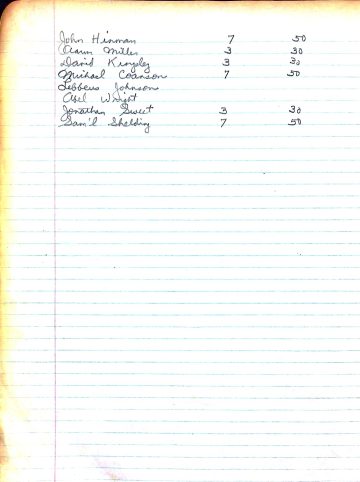 John Hinman 7 50
Aaron Miller 3 30
David Kingsley 3 30
Michael Coanson 7 50
Lebbeus Johnson
Abel Wright
Jonathan Sweet 3 30
Sam'l Shelding 7 50